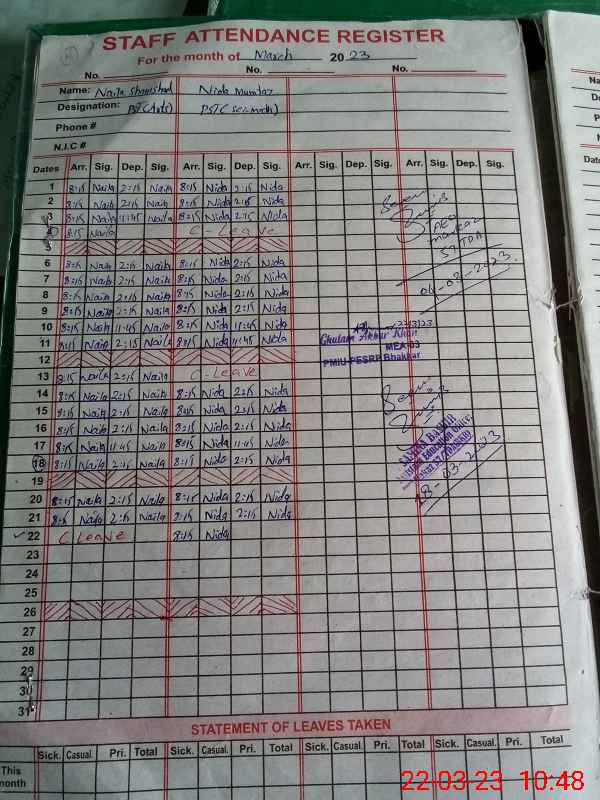 STAFF ATTENDANCE REGISTER
For the month of March 2023
No. No. No.
Name: Naila Nida Mumtaz
Designation: PST (Arts) PST (Sci-math)
Phone #
N.I.C #
Dates Arr. Sig. Dep. Sig. Arr. Sig. Dep. Sig. Arr. Sig. Dep. Sig. Arr. Sig. Dep. Sig.
1 8:15 Naila 2:15 Naila 8:15 Nida 2:15 Nida
2 8:15 Naila 2:15 Naila 8:15 Nida 2:15 Nida
3 8:15 Naila 11:45 Naila 8:15 Nida 2:15 Nida
4 8:15 Naila C-Leave
5
6 8:15 Naila 2:15 Naila 8:15 Nida 2:15 Nida
7 8:15 Naila 2:15 Naila 8:15 Nida 2:15 Nida
8 8:15 Naila 2:15 Naila 8:15 Nida 2:15 Nida
9 8:15 Naila 2:15 Naila 8:15 Nida 2:15 Nida
10 8:15 Naila 11:45 Naila 8:15 Nida 11:45 Nida
11 8:15 Naila 2:15 Naila 8:15 Nida 11:45 Nida
12
13 8:15 Naila 2:15 Naila C-Leave
14 8:15 Naila 2:15 Naila 8:15 Nida 2:15 Nida
15 8:15 Naila 2:15 Naila 8:15 Nida 2:15 Nida
16 8:15 Naila 2:15 Naila 8:15 Nida 2:15 Nida
17 8:15 Naila 11:45 Naila 8:15 Nida 11:45 Nida
18 8:15 Naila 2:15 Naila 8:15 Nida 2:15 Nida
19
20 8:15 Naila 2:15 Naila 8:15 Nida 2:15 Nida
21 8:15 Naila 2:15 Naila 8:15 Nida 2:15 Nida
22 C Leave 8:15 Nida
23
24
25
26
27
28
29
30
31
Seen
AEO
06-03-2023.
Ghulam Akbar Khan
MEA-03
PMIU-PESRP Bhakkar
Seen
18-03-2023
STATEMENT OF LEAVES TAKEN
Sick. Casual. Pri. Total Sick. Casual. Pri. Total Sick. Casual. Pri. Total Sick. Casual. Pri. Total
This
month
22-03-23 10:48